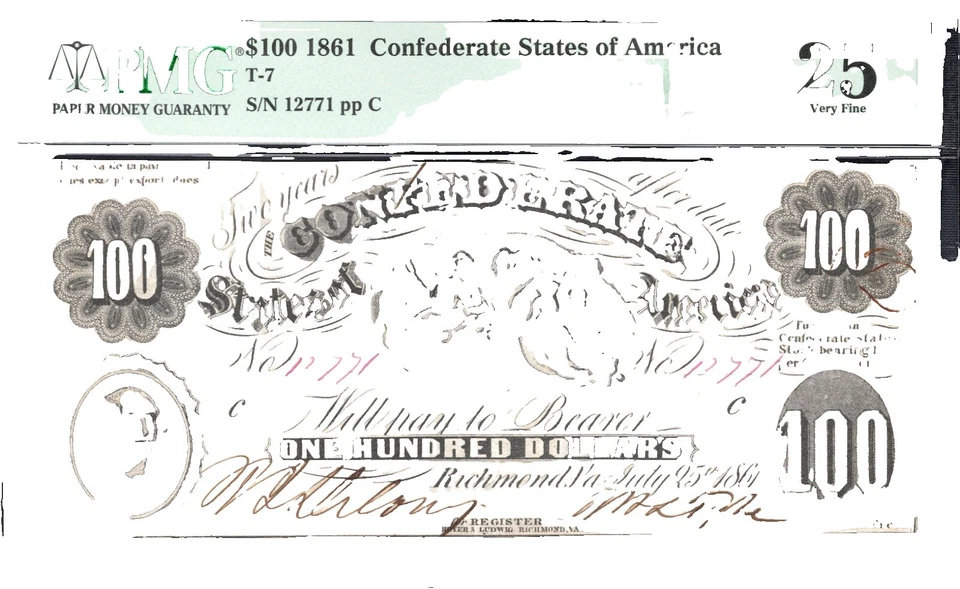 PMG® $100 1861 Confederate States of America 25
T-7
PAPER MONEY GUARANTY S/N 12771 pp C Very Fine
Two years after date
THE CONFEDERATE
100 100
States of America
No 12771 No 12771
Confederate States
Stock bearing
C Will pay to Bearer C
ONE HUNDRED DOLLARS 100
Richmond, Va. July 25th 1861
For REGISTER
HOYER & LUDWIG RICHMOND, VA.